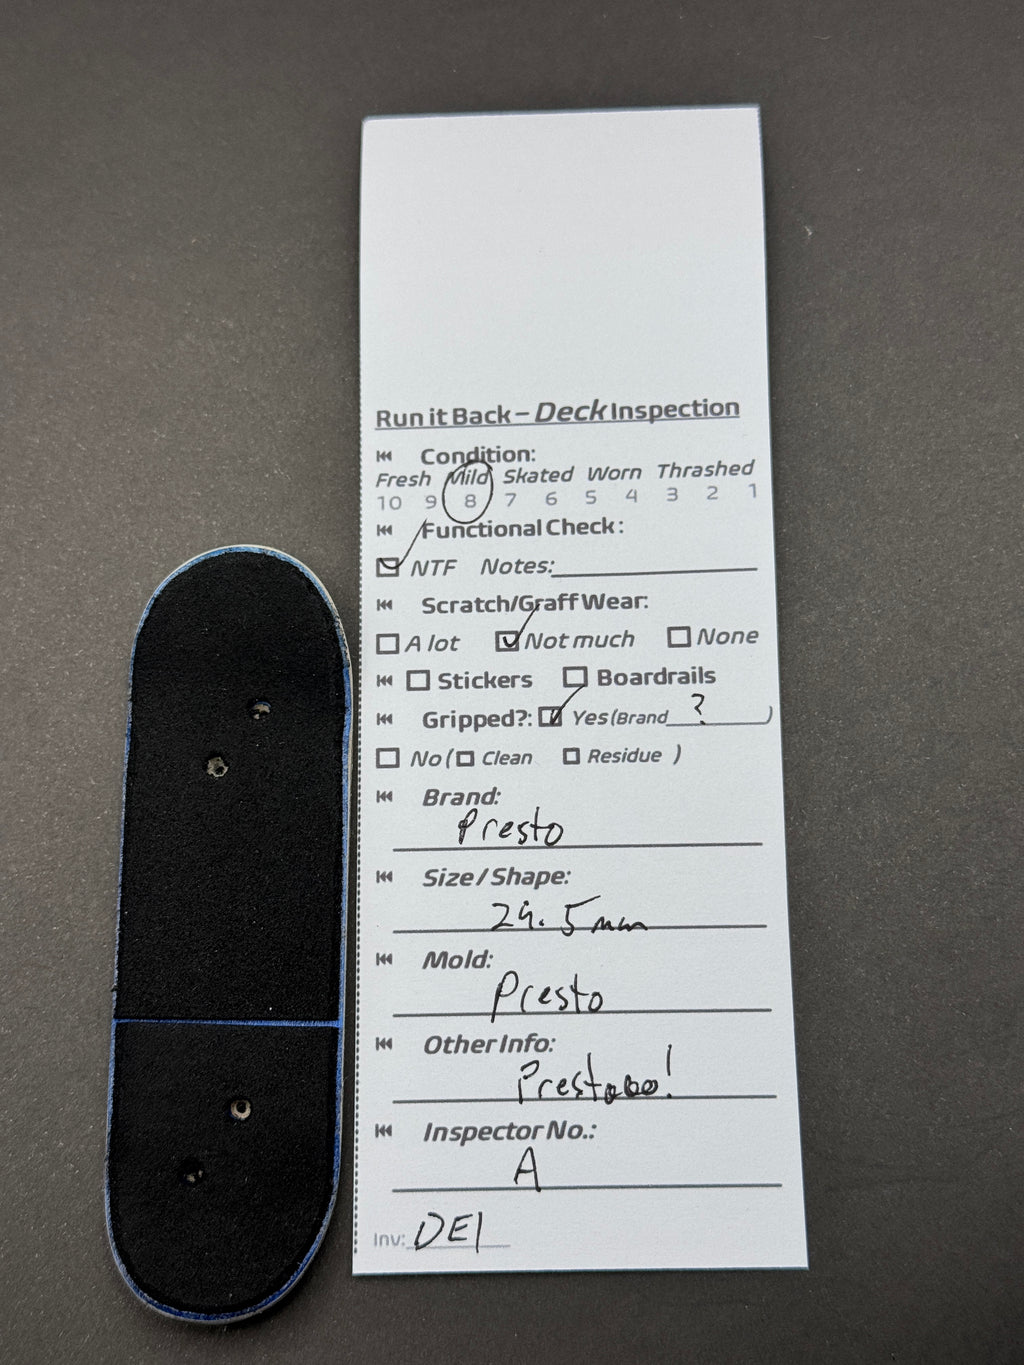 Run it Back – Deck Inspection
Condition:
Fresh Mild Skated Worn Thrashed
10 9 8 7 6 5 4 3 2 1
Functional Check:
NTF Notes:
Scratch/Graff Wear:
A lot Not much None
Stickers Boardrails
Gripped?: Yes (Brand ? )
No ( Clean Residue )
Brand:
Presto
Size / Shape:
29.5mm
Mold:
Presto
Other Info:
Prestooo!
Inspector No.:
A
Inv: DE1